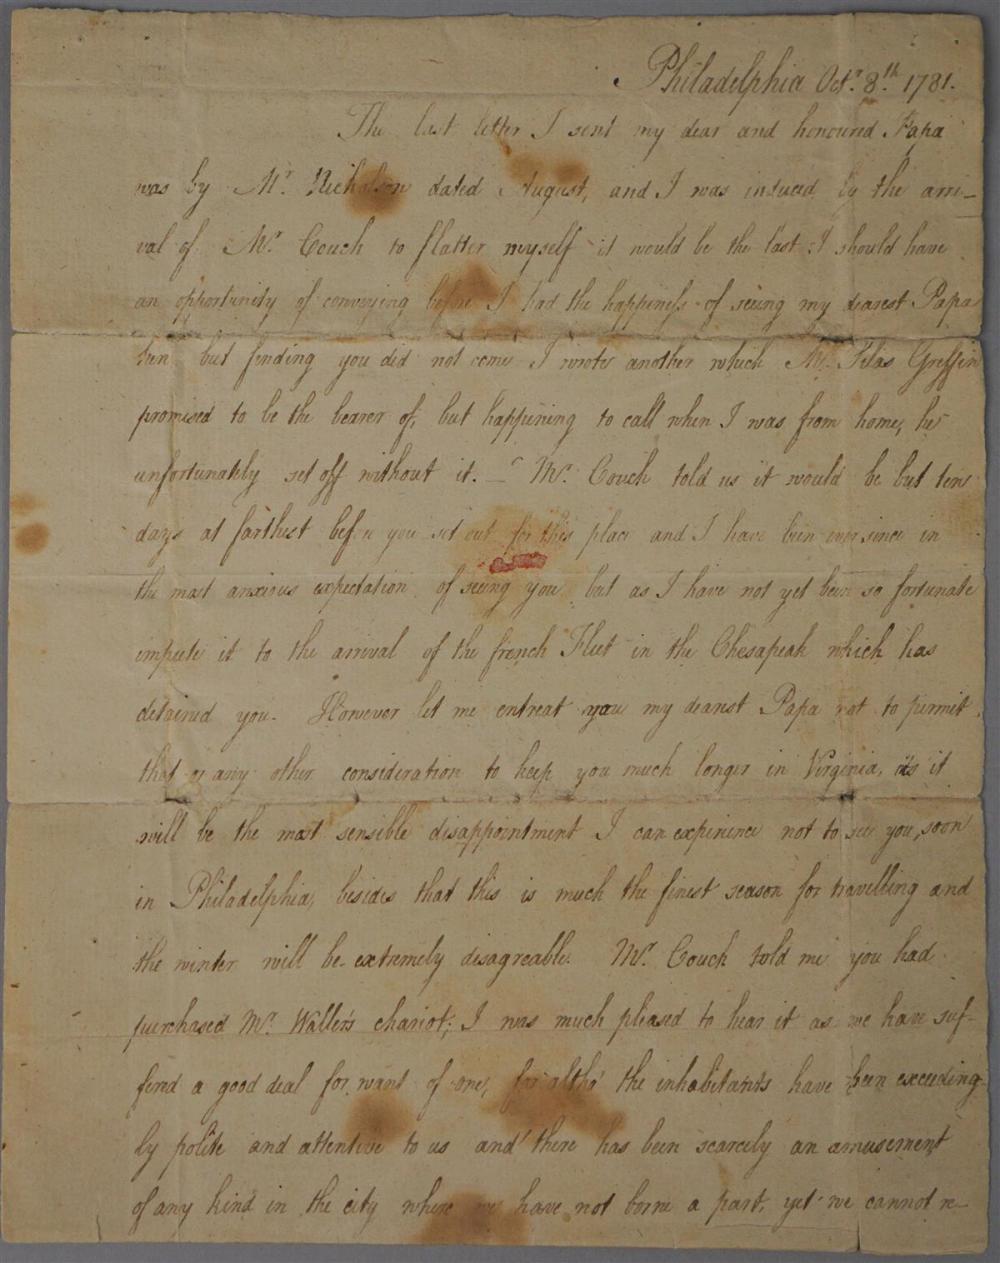 Philadelphia Octr. 8th. 1781.
The last letter I sent my dear and honoured Papa
was by Mr. Nicholson dated August, and I was induced by the arri-
val of Mr Couch to flatter myself it would be the last I should have
an opportunity of conveying before I had the happiness of seeing my dearest Papa
here but finding you did not come I wrote another which Mr. Silas Greffin
promised to be the bearer of, but happening to call when I was from home, he
unfortunately set off without it. – Mr. Couch told us it would be but ten
days at farthest before you set out for this place and I have been ever since in
the most anxious expectation of seeing you but as I have not yet been so fortunate
impute it to the arrival of the french Fleet in the Chesapeak which has
detained you. However let me entreat you my dearest Papa not to permit
that or any other consideration to keep you much longer in Virginia, as it
will be the most sensible disappointment I can experience not to see you, soon
in Philadelphia, besides that this is much the finest season for travelling and
the winter will be extremely disagreable. Mr. Couch told me you had
purchased Mr. Waller's chariot; I was much pleased to hear it as we have suf-
fered a good deal for want of one, for altho' the inhabitants have been exceeding-
ly polite and attentive to us and there has been scarcely an amusement
of any kind in the city where we have not borne a part, yet we cannot re-